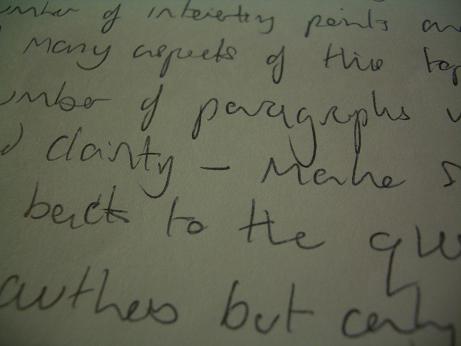 number of interesting points
Many aspects of this top
umber of paragraphs
clarity – Make s
back to the que
authes but only